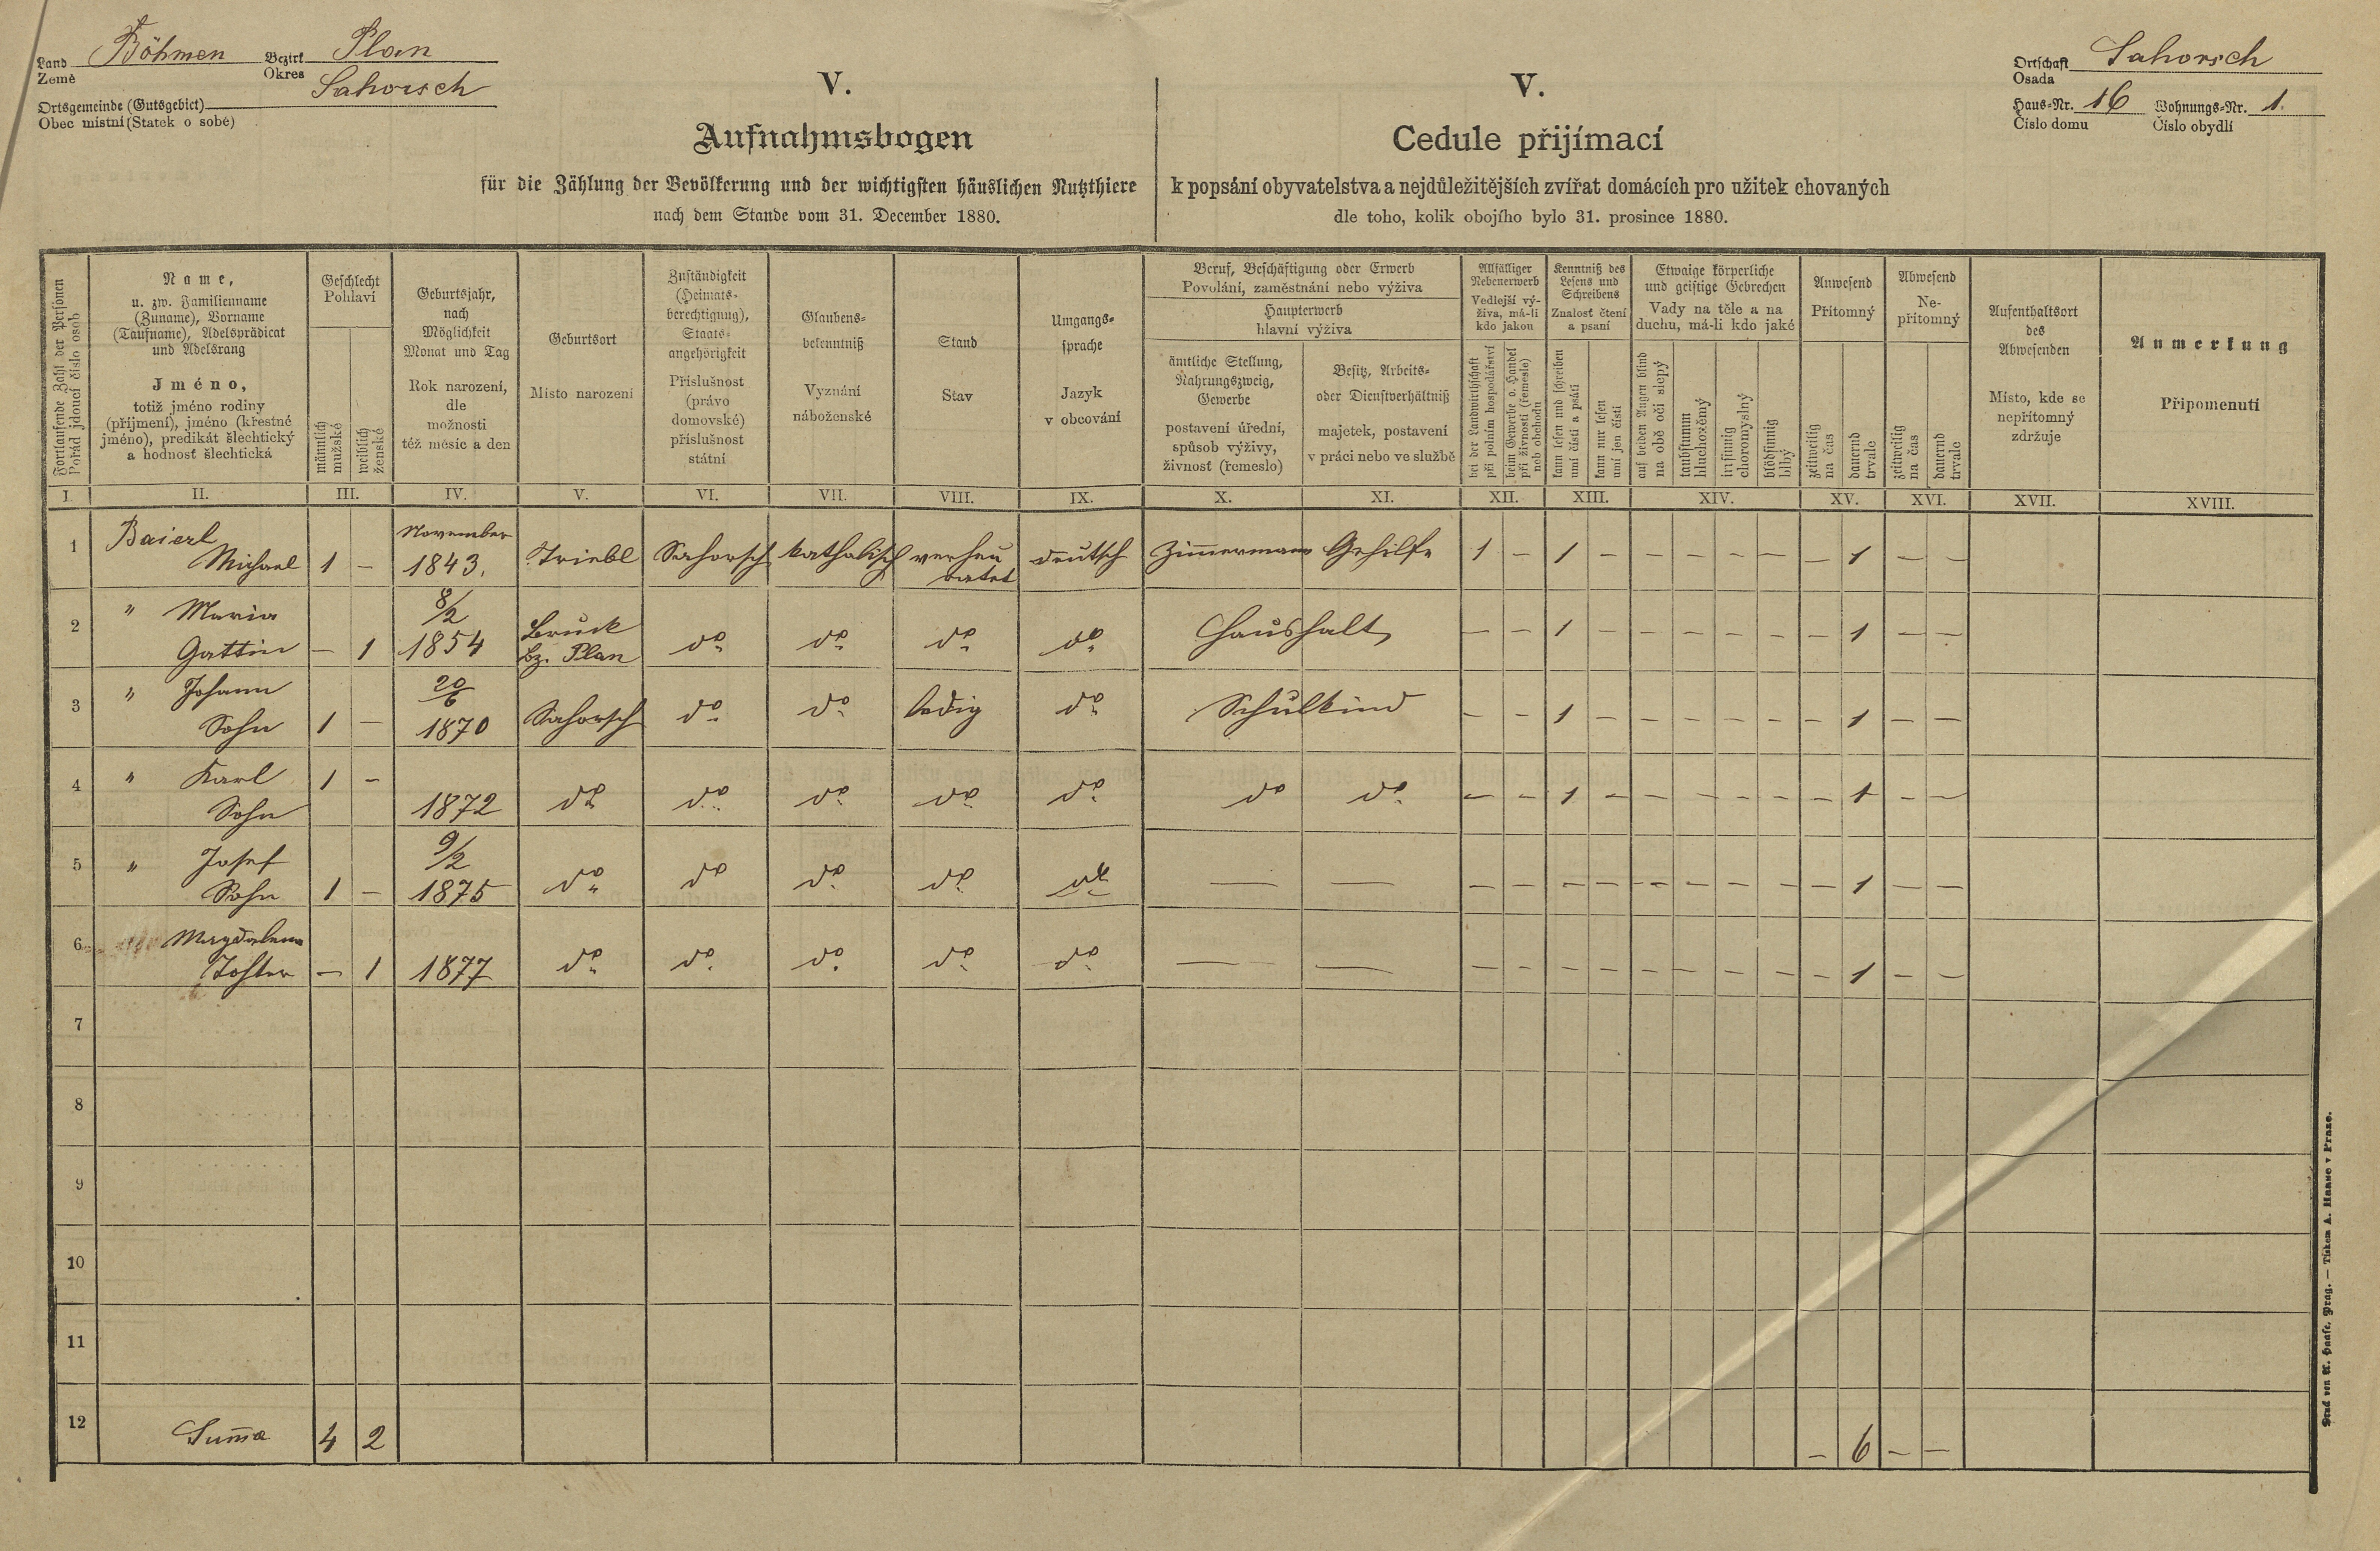 Land Böhmen Bezirk Plan
Země Okres
Sahorsch
Ortsgemeinde (Gutsgebiet)
Obec místní (Statek o sobě)
V.
Aufnahmsbogen
für die Zählung der Bevölkerung und der wichtigsten häuslichen Nutzthiere
nach dem Stande vom 31. December 1880.
V.
Cedule přijímací
k popsání obyvatelstva a nejdůležitějších zvířat domácích pro užitek chovaných
dle toho, kolik obojího bylo 31. prosince 1880.
Ortschaft Sahorsch
Osada
Haus-Nr. 16 Wohnungs-Nr. 1.
Číslo domu Číslo obydlí
Fortlaufende Zahl der Personen
Pořád jdoucí číslo osob
Name,
u. zw. Familienname
(Zuname), Vorname
(Taufname), Adelsprädicat
und Adelsrang
Jméno,
totiž jméno rodiny
(příjmení), jméno (křestné
jméno), predikát šlechtický
a hodnosť šlechtická
Geschlecht
Pohlaví
männlich
mužské
weiblich
ženské
Geburtsjahr,
nach
Möglichkeit
Monat und Tag
Rok narození,
dle
možnosti
též měsíc a den
Geburtsort
Místo narození
Zuständigkeit
(Heimats-
berechtigung),
Staats-
angehörigkeit
Příslušnost
(právo
domovské)
příslušnost
státní
Glaubens-
bekenntniß
Vyznání
náboženské
Stand
Stav
Umgangs-
sprache
Jazyk
v obcování
Beruf, Beschäftigung oder Erwerb
Povolání, zaměstnání nebo výživa
Haupterwerb
hlavní výživa
ämtliche Stellung,
Nahrungszweig,
Gewerbe
postavení úřední,
spůsob výživy,
živnosť (řemeslo)
Besitz, Arbeits-
oder Dienstverhältniß
majetek, postavení
v práci nebo ve službě
Allfälliger
Nebenerwerb
Vedlejší vý-
živa, má-li
kdo jakou
bei der Landwirthschaft
při polním hospodářství
beim Gewerbe o. Handel
při živnosti (řemesle)
neb obchodu
Kenntniß des
Lesens und
Schreibens
Znalosť čtení
a psaní
kann lesen und schreiben
umí čísti a psáti
kann nur lesen
umí jen čísti
Etwaige körperliche
und geistige Gebrechen
Vady na těle a na
duchu, má-li kdo jaké
auf beiden Augen blind
na obě oči slepý
taubstumm
hluchoněmý
irrsinnig
choromyslný
blödsinnig
blbý
Anwesend
Přítomný
zeitweilig
na čas
dauernd
trvale
Abwesend
Ne-
přítomný
zeitweilig
na čas
dauernd
trvale
Aufenthaltsort
des
Abwesenden
Místo, kde se
nepřítomný
zdržuje
Anmerkung
Připomenutí
I. II. III. IV. V. VI. VII. VIII. IX. X. XI. XII. XIII. XIV. XV. XVI. XVII. XVIII.
1 Baierl November
Michael 1 – 1843. Triebl Sahorsch katholisch verheu deutsch Zimmermann Gehilfe 1 – 1 – – – – – – 1 – –
ratet
2 " Maria 8/2
Gattin – 1 1854 Bruck
bz. Plan do do do do Haushalt – – 1 – – – – – – 1 – –
3 " Johann 20/6
Sohn 1 – 1870 Sahorsch do do ledig do Schulkind – – 1 – – – – – – 1 – –
4 " Karl 1 –
Sohn 1872 do do do do do do do – – 1 – – – – – – 1 – –
5 " Josef 9/2
Sohn 1 – 1875 do do do do do — — – – – – – – – – – 1 – –
6 Magdalena
Tochter – 1 1877 do do do do do — — – – – – – – – – – 1 – –
7
8
9
10
11
12 Suma 4 2 – 6 – –
Druck von A. Haase, Prag. — Tiskem A. Haase v Praze.